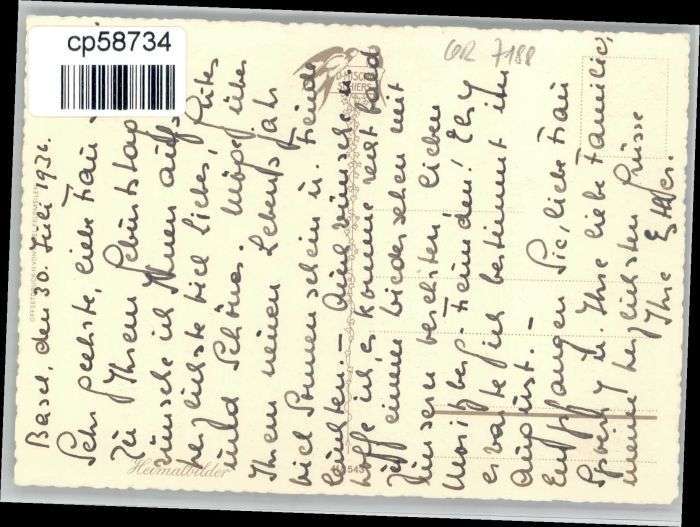 cp58734
GR 7188
Basel, den 30. Juli 1936.
Sehr geehrte, liebe Frau
Zu Ihrem Geburtstag
wünsche ich Ihnen aufs
herzlichste viel Liebes, Gutes
und Schönes. Möge über
Ihrem neuen Lebensjahr
viel Sonnenschein u. Freude
leuchten. – Auch wünsche u.
hoffe ich, es komme recht bald
zu einem Wiedersehen mit
unsern verehrten, lieben
Moritzberg-Freunden!
erwarte ich bestimmt im
August. –
Empfangen Sie, liebe Frau
u. Ihre liebe Familie,
meine herzlichsten Grüsse
Ihre Esther.
Heimatbilder